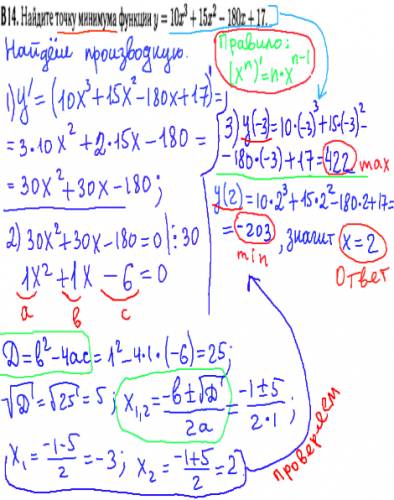 В14. Найдите точку минимума функции y = 10x³ + 15x² − 180x + 17.
Найдём производную.
1) y' = (10x³+15x²−180x+17)' =
= 3·10x²+2·15x−180 =
= 30x²+30x−180;
2) 30x²+30x−180=0 |:30
1x²+1x−6=0
a в c
D=в²−4ac=1²−4·1·(−6)=25;
√D=√25=5; x₁,₂=(−в±√D)/2a=(−1±5)/(2·1);
x₁=(−1−5)/2=−3; x₂=(−1+5)/2=2
Правило:
(xⁿ)'=n·xⁿ⁻¹
3) y(−3)=10·(−3)³+15·(−3)²−
−180·(−3)+17=422 max
y(2)=10·2³+15·2²−180·2+17=
=−203, значит x=2
min
Ответ
проверяем